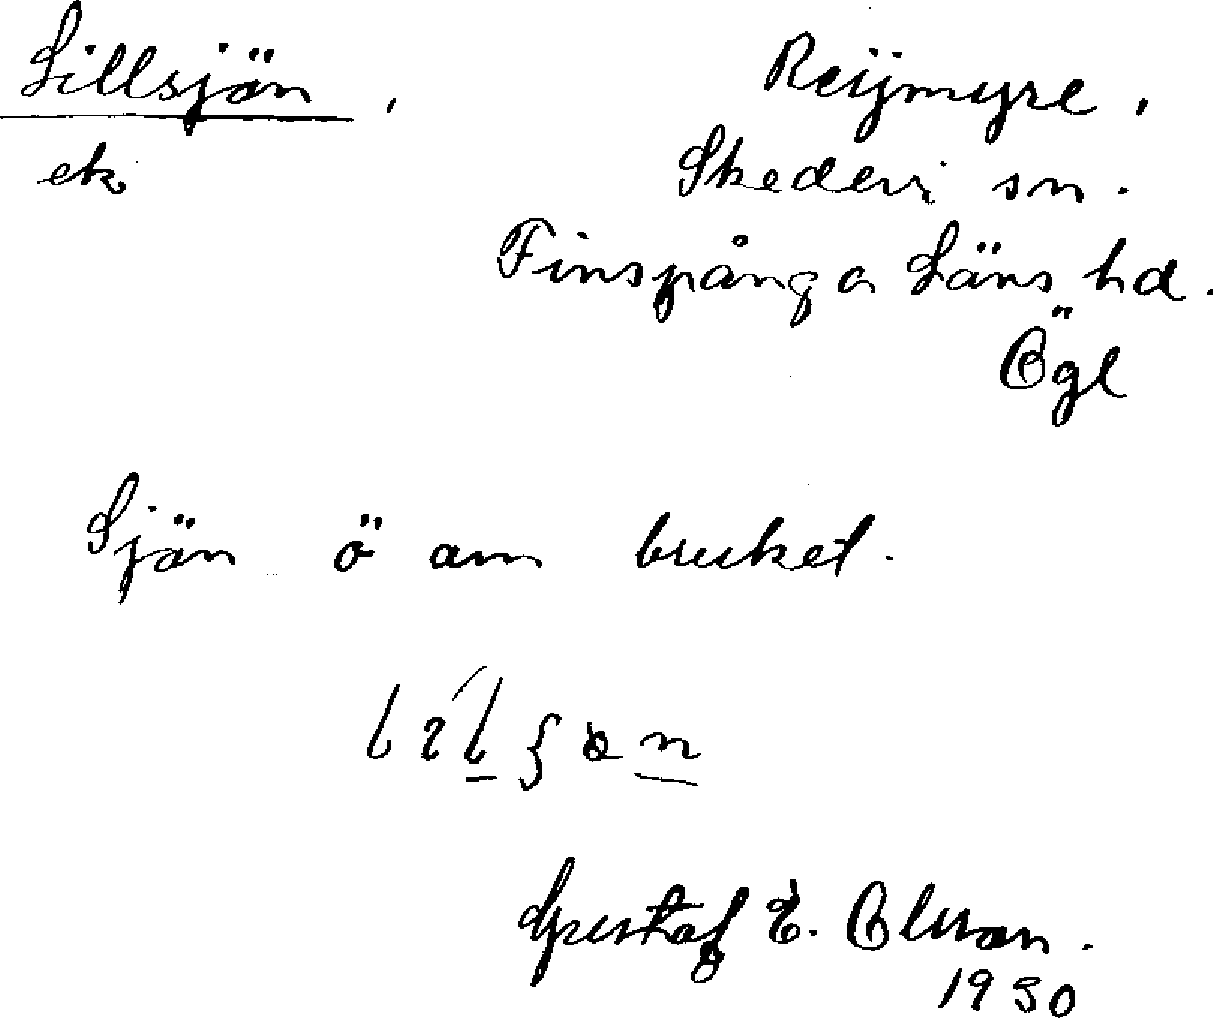 Lillsjön, Reijmyre,
ek Skedevi sn.
Finspånga Läns hd.
Ögl
Sjön ö om bruket.
Gustaf E. Olsson.
1930